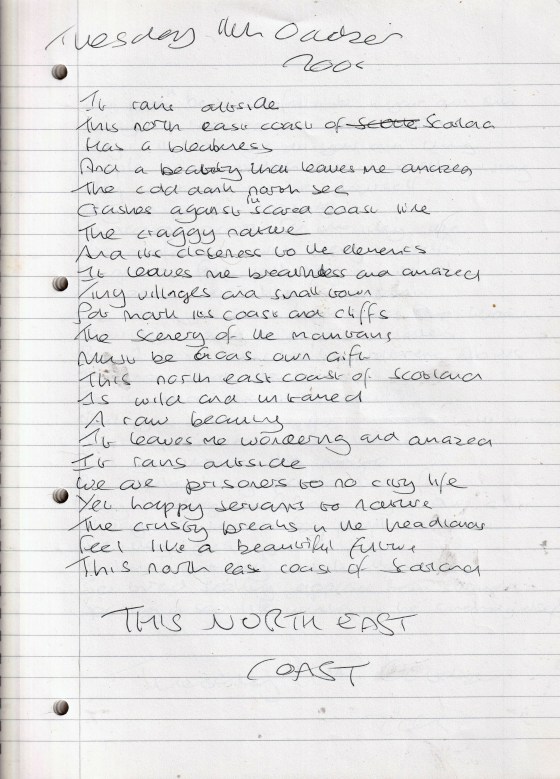 Tuesday 11th October
200
It rains outside
This north east coast of Scotland
Has a bleakness
And a beauty that leaves me amazed
The cold dark north sea
Crashes against its scared coast line
The craggy nature
And its closeness to the elements
It leaves me breathless and amazed
Tiny villages and small town
Pot mark its coast and cliffs
The scenery of the mountains
Must be Gods own gift
This north east coast of Scotland
Is wild and untamed
A raw beauty
It leaves me wondering and amazed
It rains outside
We are prisoners to no city life
Yet happy servants to nature
The crusty breaks in the headlands
Feel like a beautiful future
This north east coast of Scotland
THIS NORTH EAST
COAST